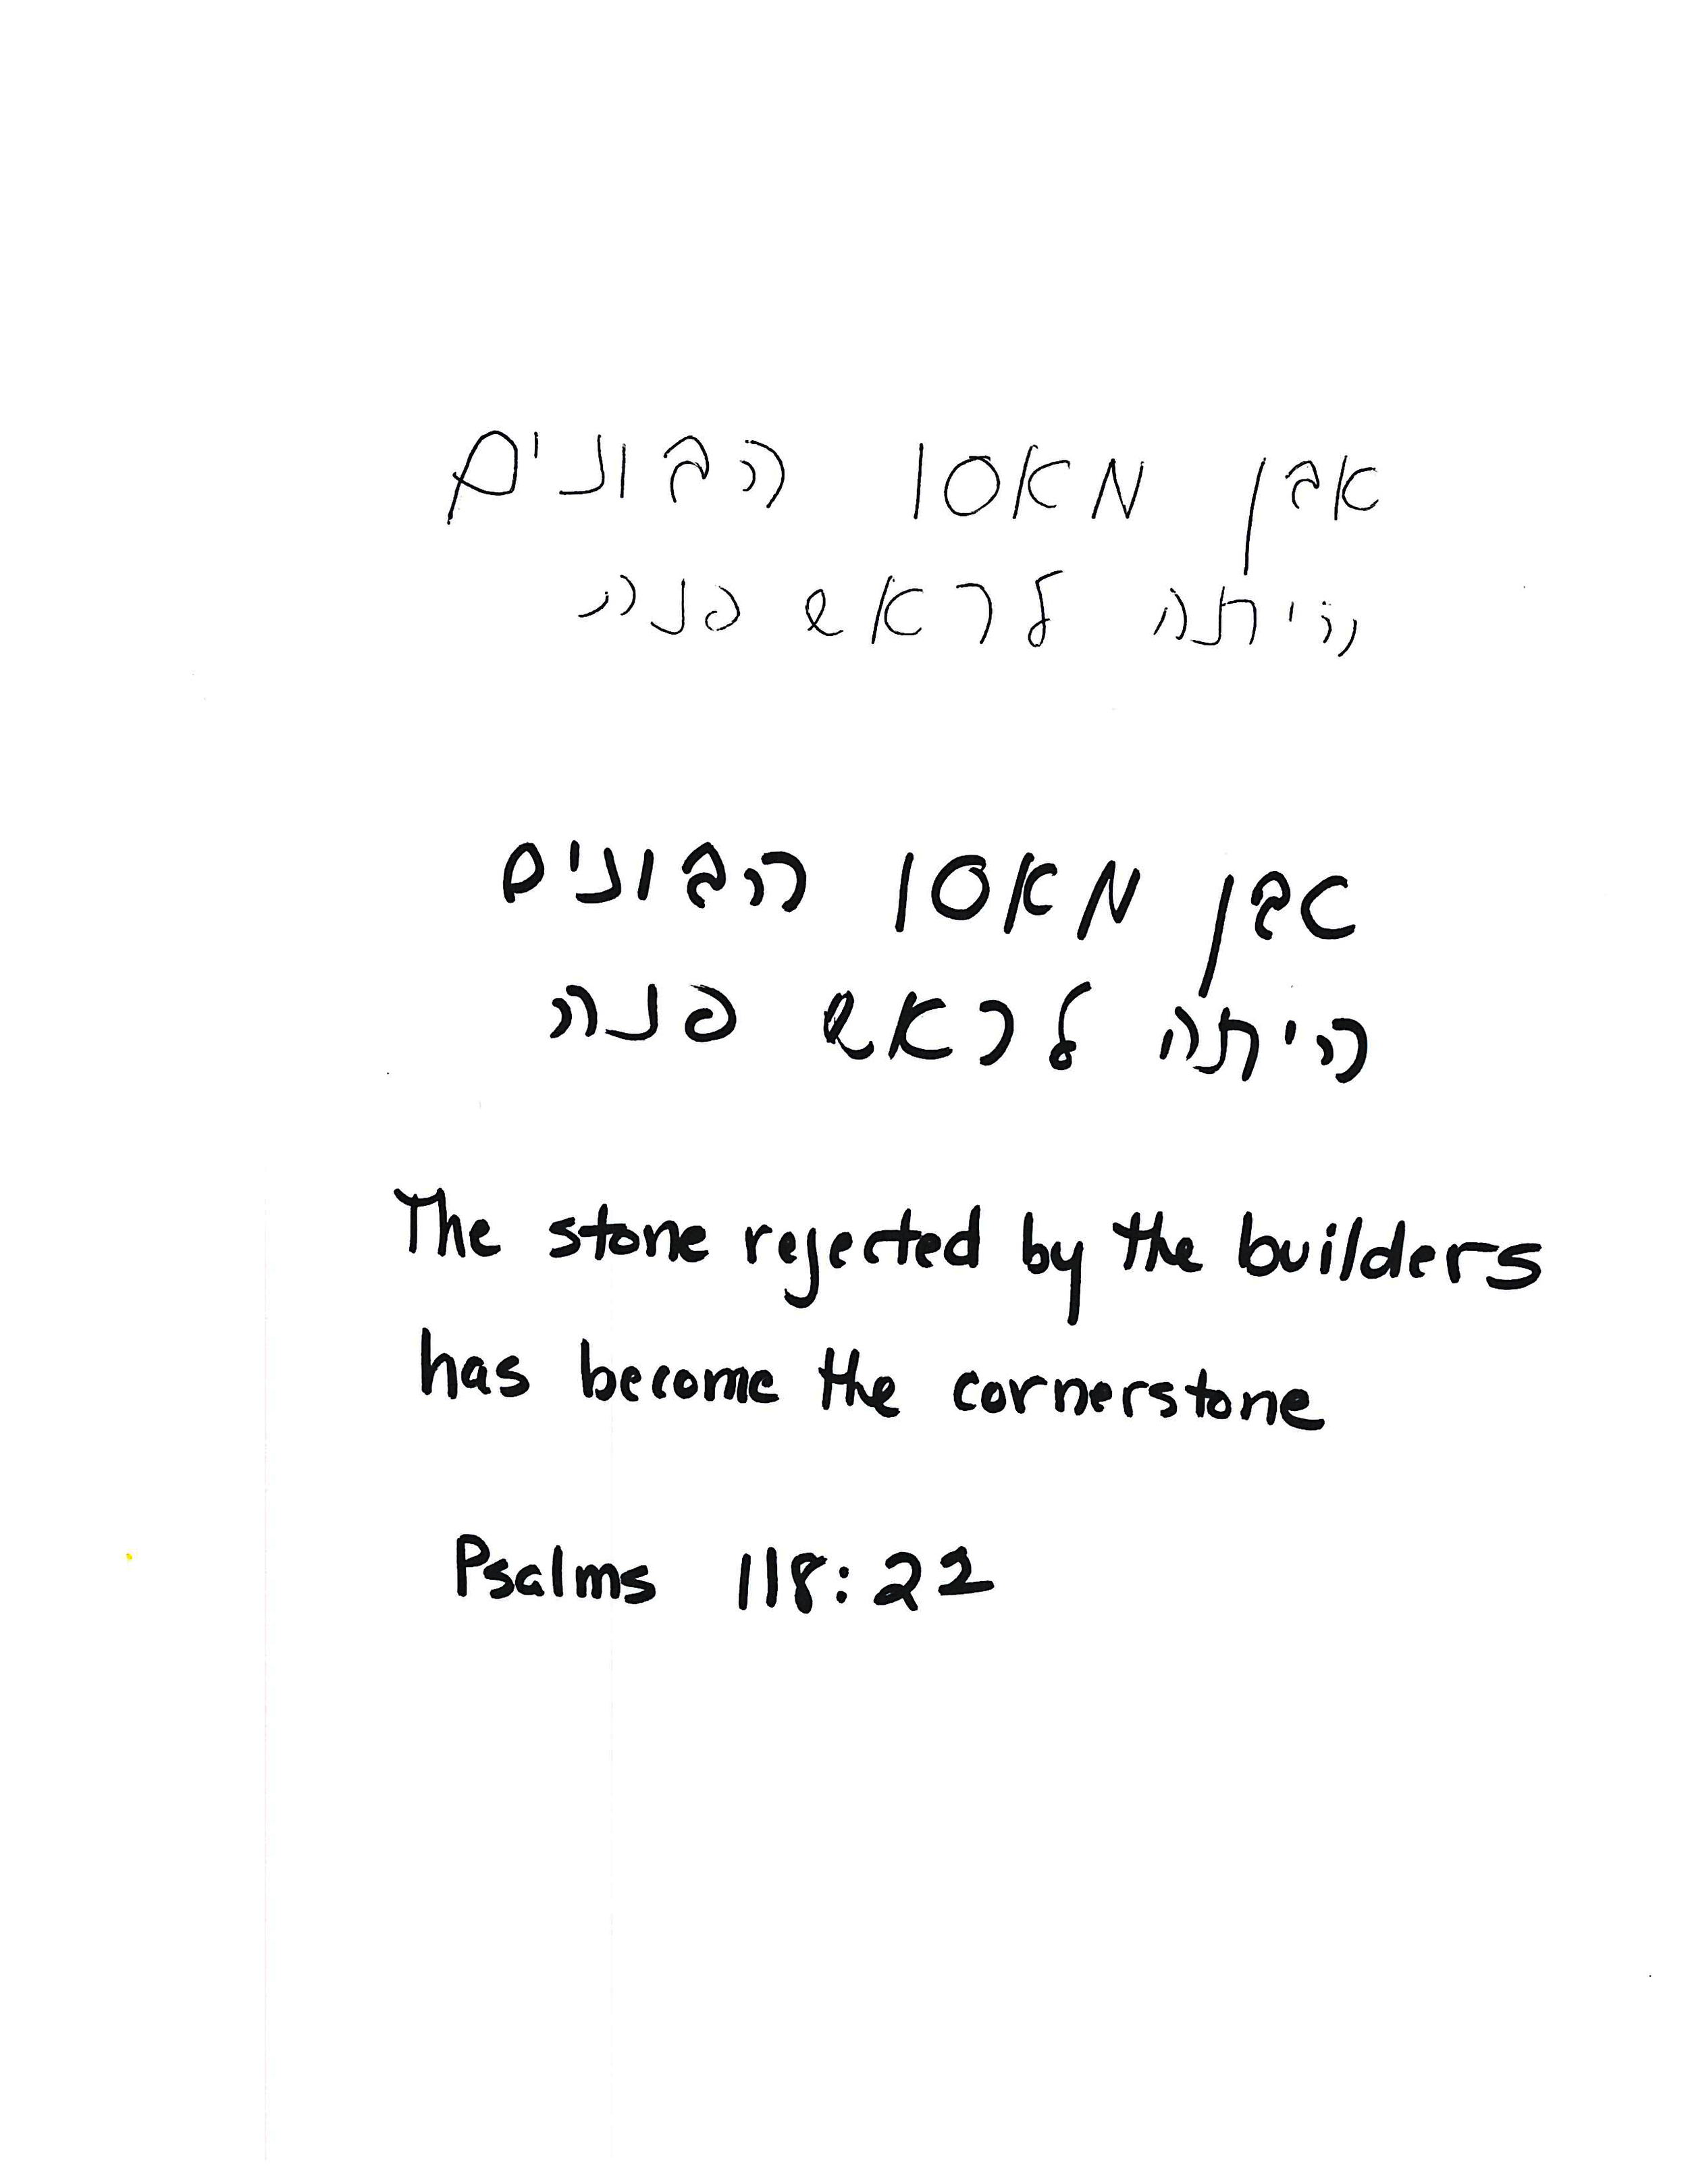 אבן מאסו הבונים
היתה לראש פנה
אבן מאסו הבונים
היתה לראש פנה
The stone rejected by the builders
has become the cornerstone
Psalms 118:22